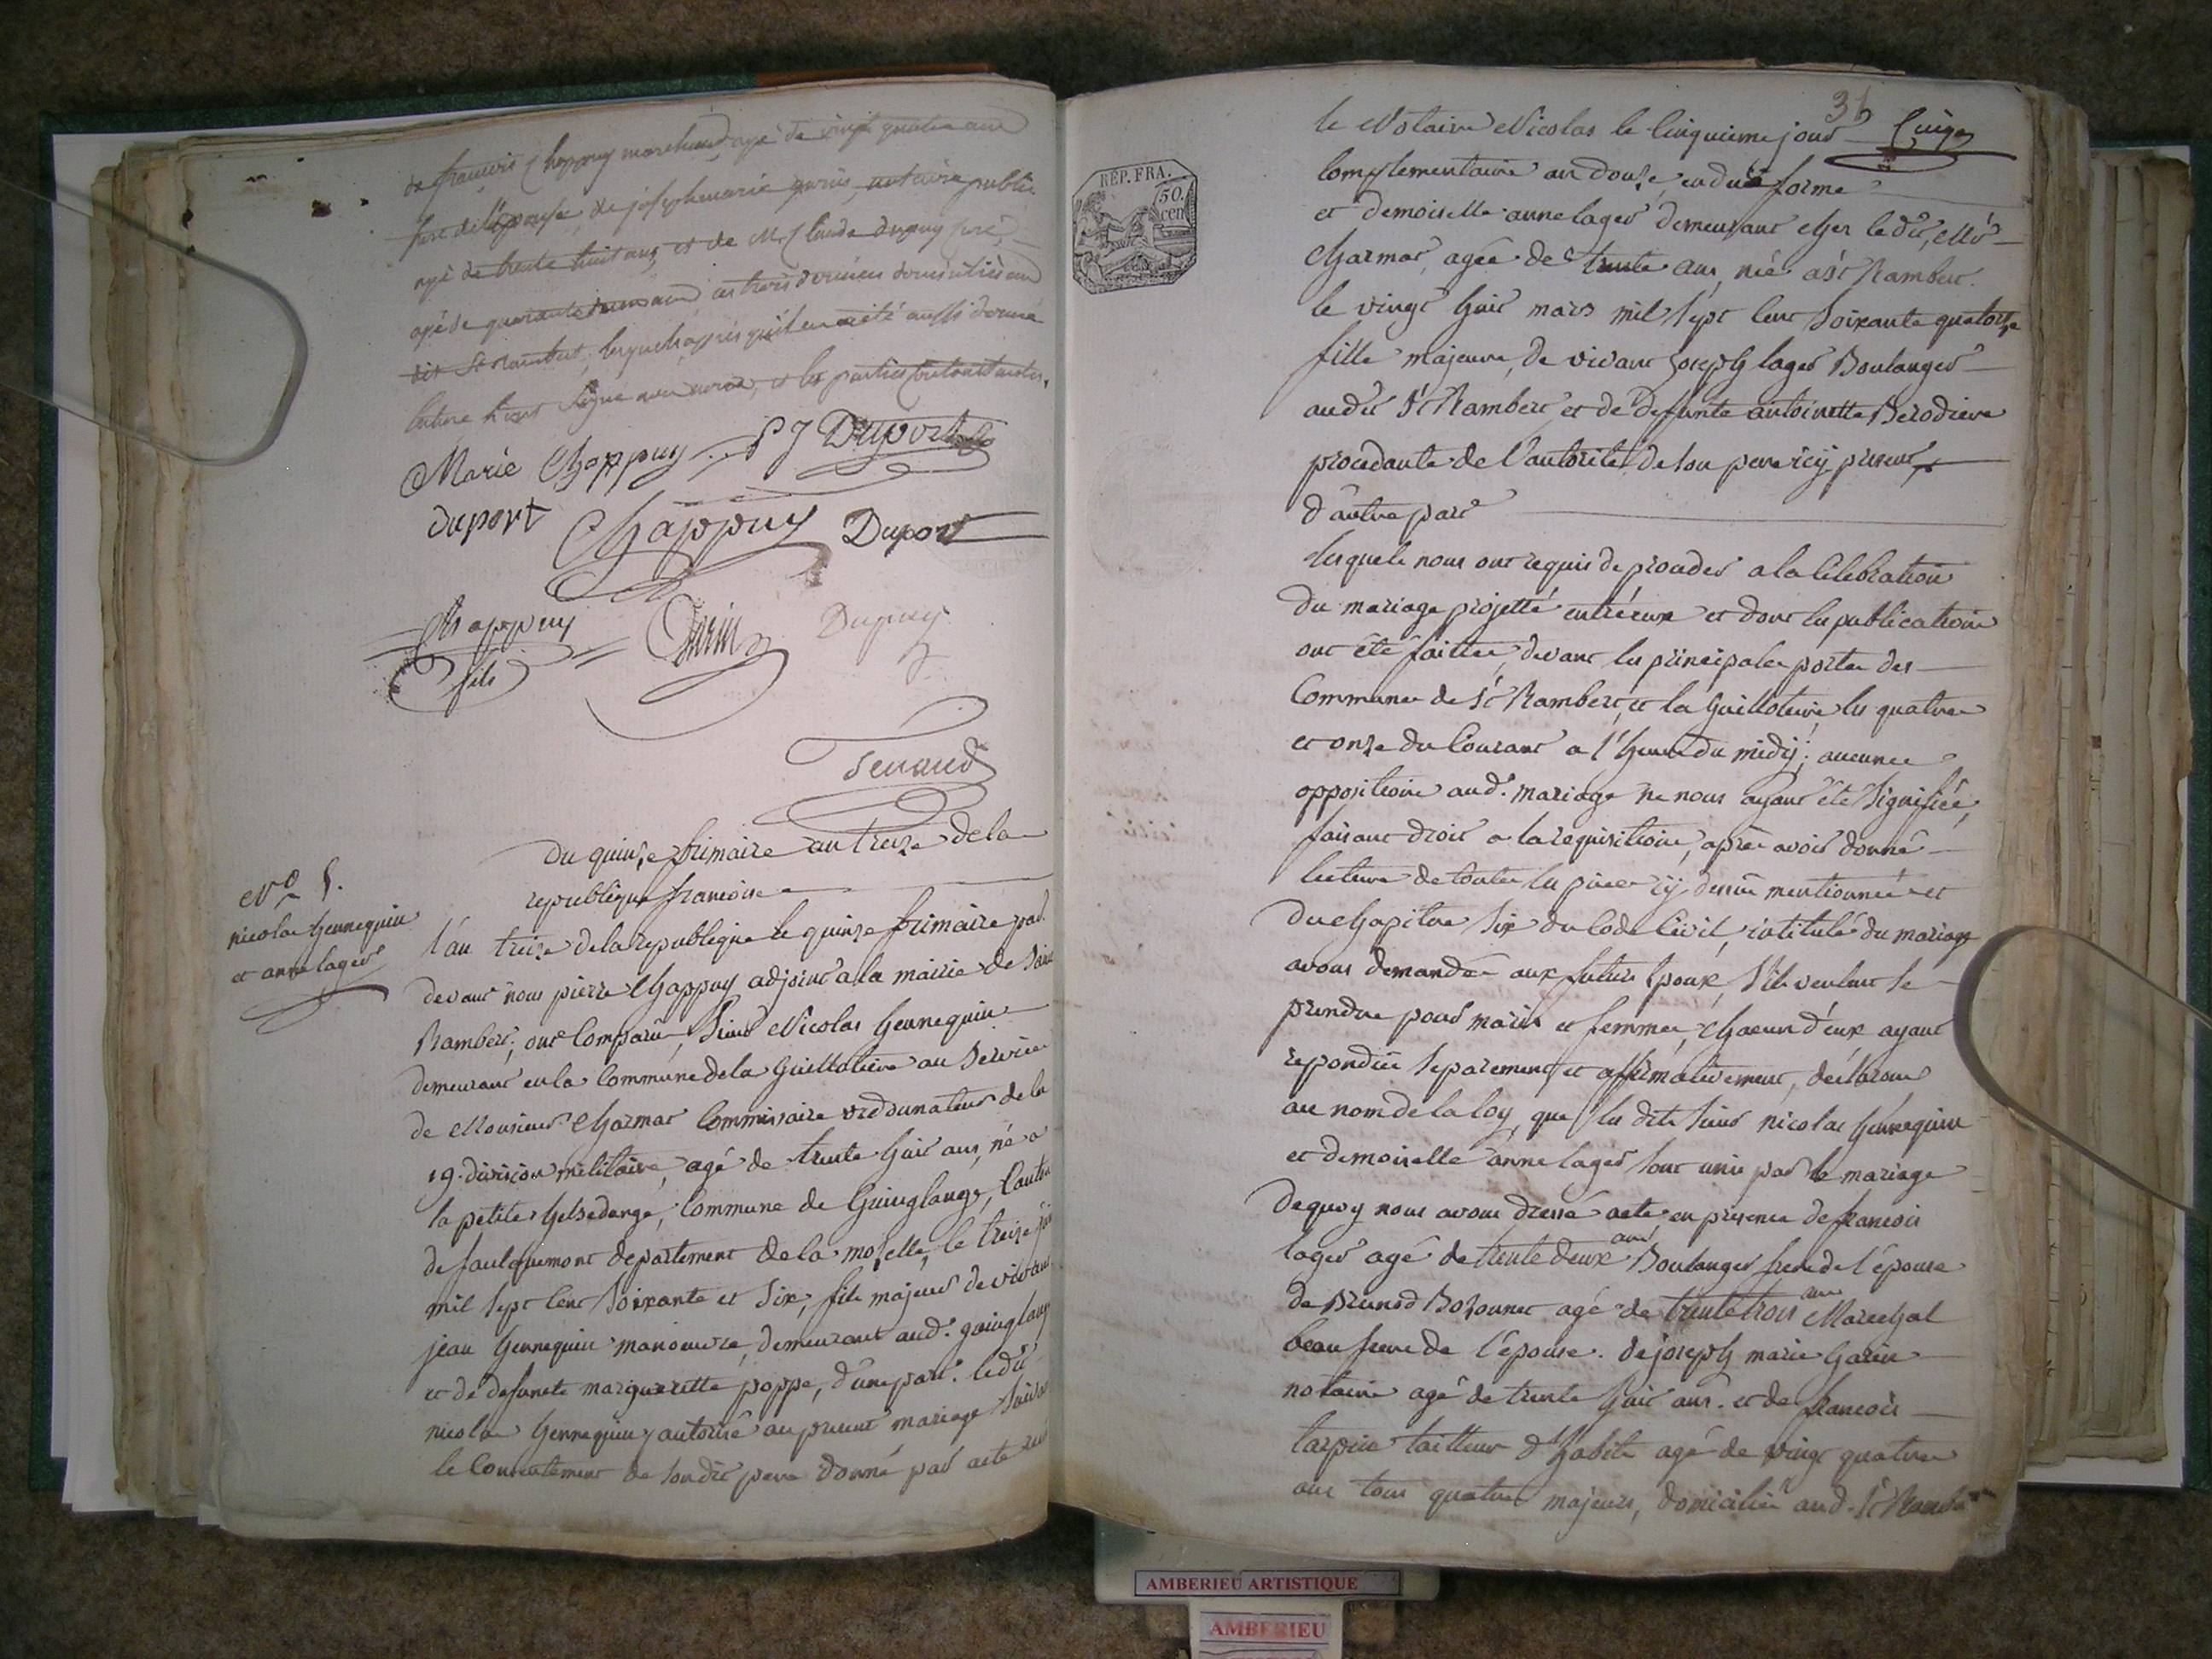 de francois Chappuy marchand agé de vingt quatre ans
frere de l'épouse, de joseph marie garin, notaire public
agé de trente huit ans, et de Mr Claude dupuy
agé de quarante ans ces trois derniers domiciliés au
dit St Rambert, lesquels apres qu'il en a été aussi donné
lecture h'ont signé avec nous, et les parties contractantes.
Marie Chappuy P J Duport
duport Chappuy Duport
Chappuy fils Garin Dupuy
Tenand
Du quinze frimaire an treize de la
republique francoise
No 5.
nicolas hennequin
et anne lager
L'an treize de la republique le quinze frimaire par
devant nous pierre Chappuy adjoint a la mairie de Saint
Rambert, ont Comparu, Sieur Nicolas hennequin
demeurant en la Commune de la Guillotiere au Service
de Monsieur Charmat Commissaire ordonnateur de la
19. division militaire, agé de trente huit ans, né a
la petite helsedange, Commune de Guinglange, Canton
de faulquemont departement de la moselle, le treize
mil sept Cent Soixante et Six, fils majeur de vivant
jean hennequin manoeuvre, demeurant aud. guinglange
et de defuncte margueritte poppe, d'une part. ledit
nicolas hennequin autorisé au present mariage Suivant
le Consentement de Sondit pere donné par acte
35
le Notaire Nicolas le Cinquieme jour
Complementaire an douze, en due forme
et demoiselle anne lager demeurant chez le dit Mr
Charmat, agée de trente ans, née a St Rambert.
le vingt huit mars mil sept Cent Soixante quatorze
fille majeure, de vivant Joseph lager Boulanger
audit St Rambert et de deffunte antoinette Berodiere
procedante de l'autorité de Son pere icy present
d'autre part
Lesquels nous ont requis de proceder a la Celebration
du mariage projetté entréeux et dont les publications
ont été faittes, devant les principales portes des
Communes de St Rambert, et la Guillotiere les quatre
et onze du Courant a l'heure du midy; aucunes
oppositions aud. mariage ne nous ayant été Signifiée,
faisant droit a la requisitions, aprés avoir donné
lecture de toutes les pieces cy dessus mentionnées et
du chapitre Six du Code Civil, intitulé du mariage
avons demandés aux futurs Epoux, S'ils veulent Se
prendre pour maris et femmes, chacun d'eux ayant
repondüs Separement et affirmativement, déclarons
au nom de la loy, que les dits Sieur nicolas hennequin
et demoiselle anne lager Sont unis par le mariage
de quoy nous avons dressé acte en presence de francois
lager agé de trente deux ans Boulanger frere de l'épouse
de agé de trente trois ans Marechal
beau frere de l'épouse. de joseph marie Garin
notaire agé de trente huit ans. et de francois
tailleur d'habits agé de vingt quatre
ans tous quatre majeurs, domiciliés aud. St Rambt
REP. FRA.
50. cen
AMBERIEU ARTISTIQUE
AMBERIEU